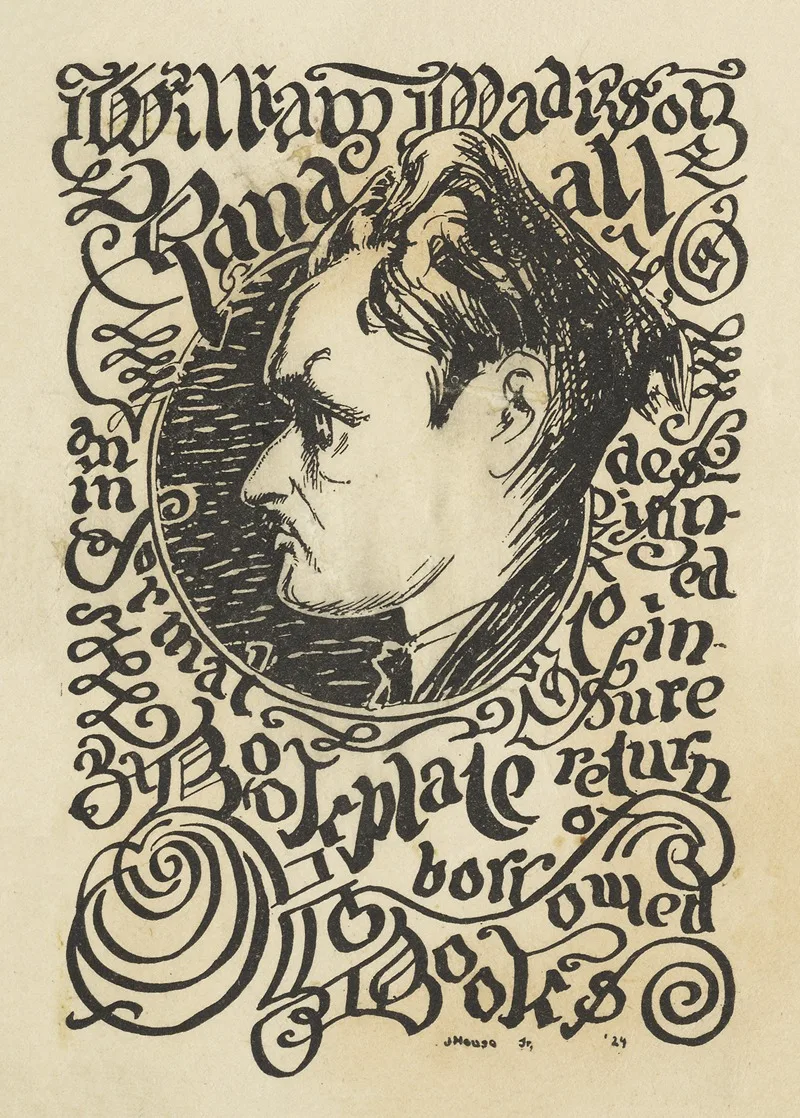 William Madison
Randall
an
in
formal
Bookplate
des-
ign-
ed
to in-
sure
return
of
borr
owed
Books
JHouse Jr, '24